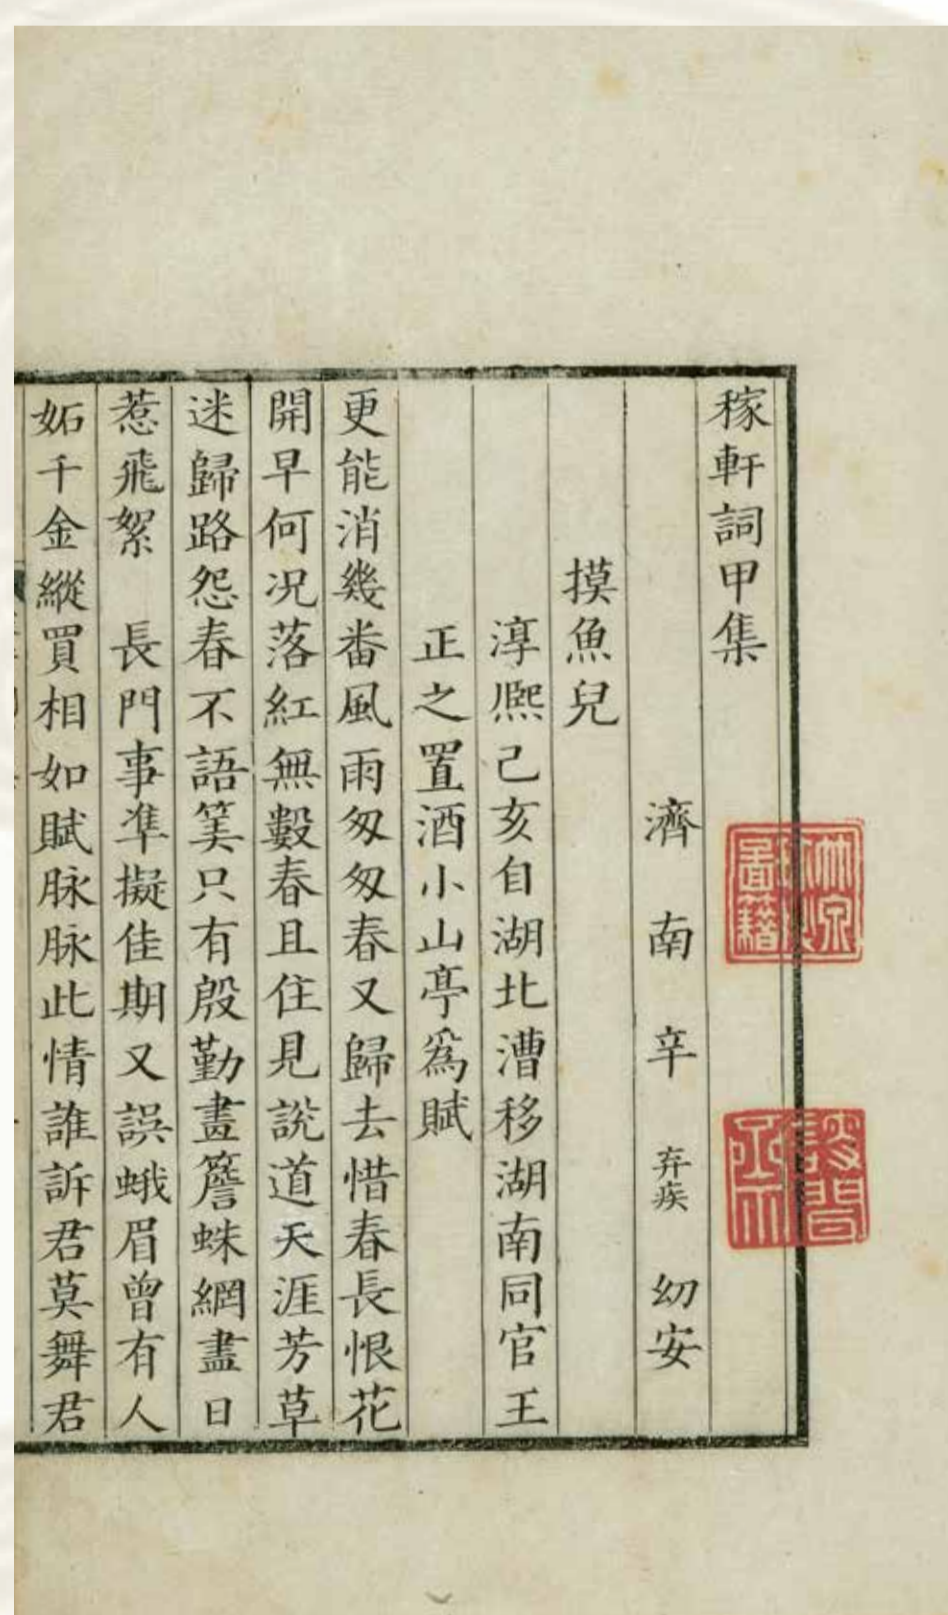 稼軒詞甲集
濟南辛弃疾幼安
摸魚兒
淳熈己亥自湖北漕移湖南同官王
正之置酒小山亭爲賦
更能消幾番風雨匆匆春又歸去惜春長恨花
開早何况落紅無數春且住見說道天涯芳草
迷歸路怨春不語筭只有殷勤畫簷蛛網盡日
惹飛絮　長門事準擬佳期又誤蛾眉曾有人
妬千金縱買相如賦脉脉此情誰訴君莫舞君